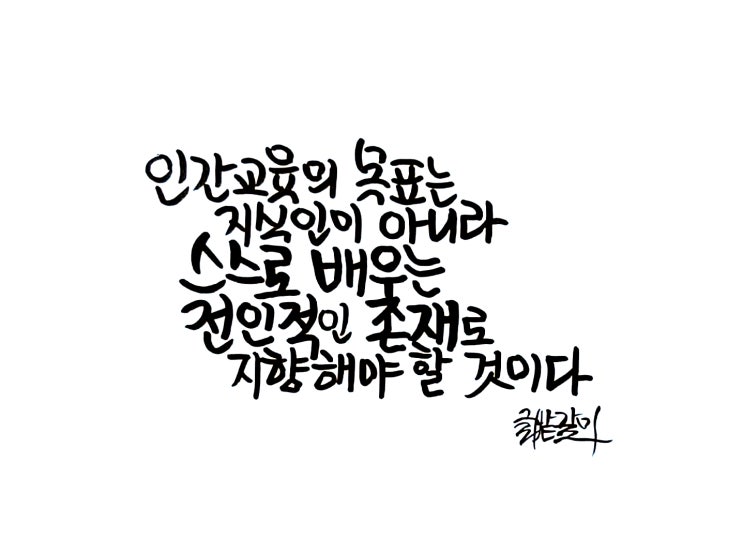 인간교육의 목표는
지식인이 아니라
스스로 배우는
전인적인 존재로
지향해야 할 것이다
글밭갈이